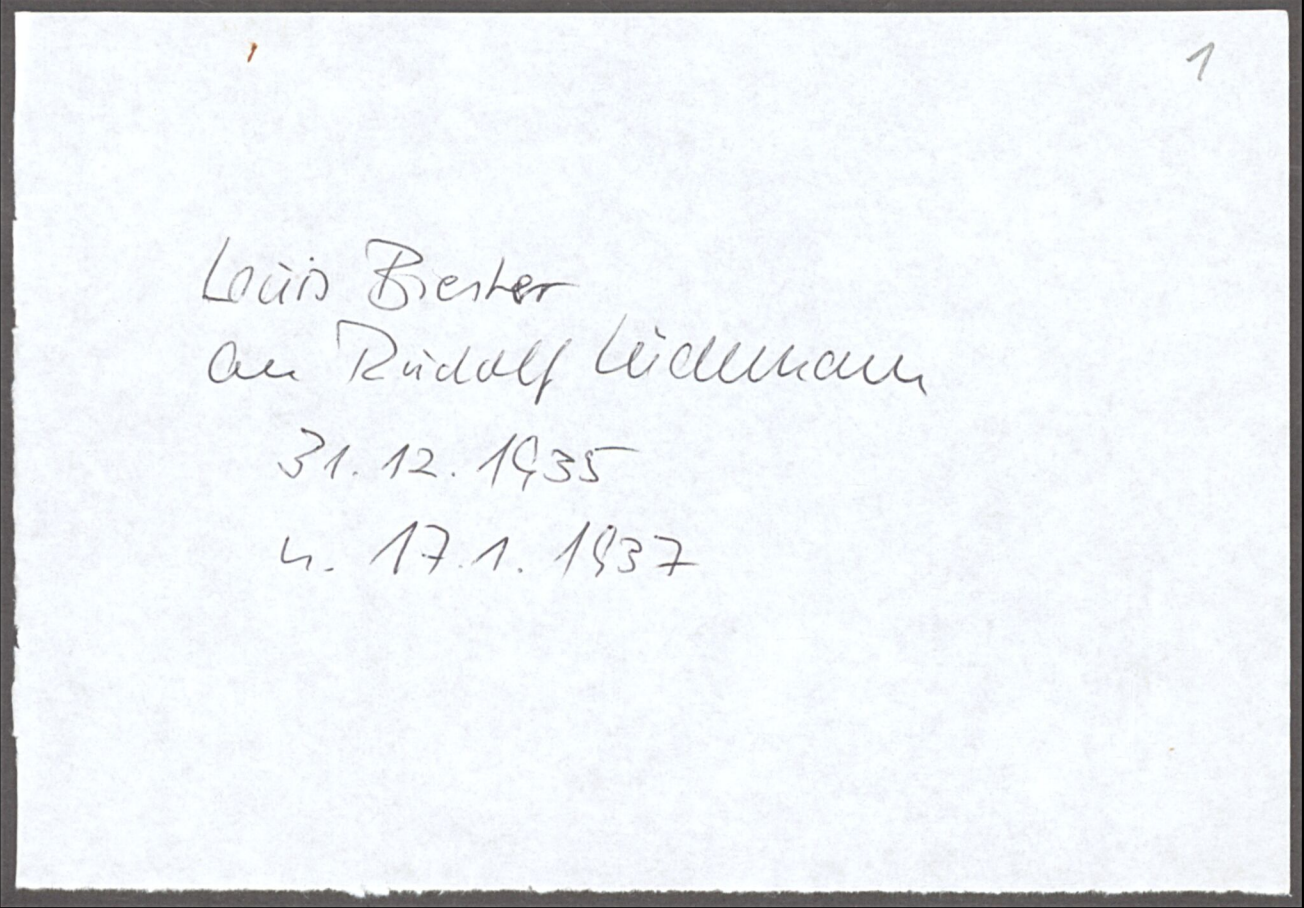 1
Louis Biester
an Rudolf Lüdemann
31.12.1935
u. 17.1.1937